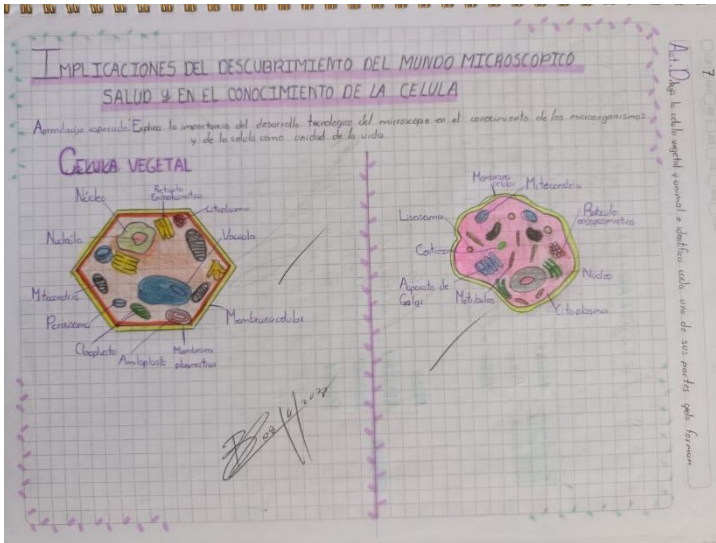 IMPLICACIONES DEL DESCUBRIMIENTO DEL MUNDO MICROSCOPICO
SALUD Y EN EL CONOCIMIENTO DE LA CELULA
Aprendizaje esperado: Explica la importancia del desarrollo tecnologico del microscopio en el conocimiento de los microorganismos
y de la celula como unidad de la vida
CELULA VEGETAL
Núcleo
Citoplasma
Nucleolo
Vacuola
Mitocondria
Peroxisoma
Membrana celular
Cloroplasto
Amiloplasto
Membrana
plasmatica
Membrana
celular
Mitocondria
Lisosoma
Reticulo
endoplasmatico
Nucleo
Aparato de
Golgi
Citoplasma
7
Act: Dibuja la celula vegetal y animal e identifica cada una de sus partes que la forman